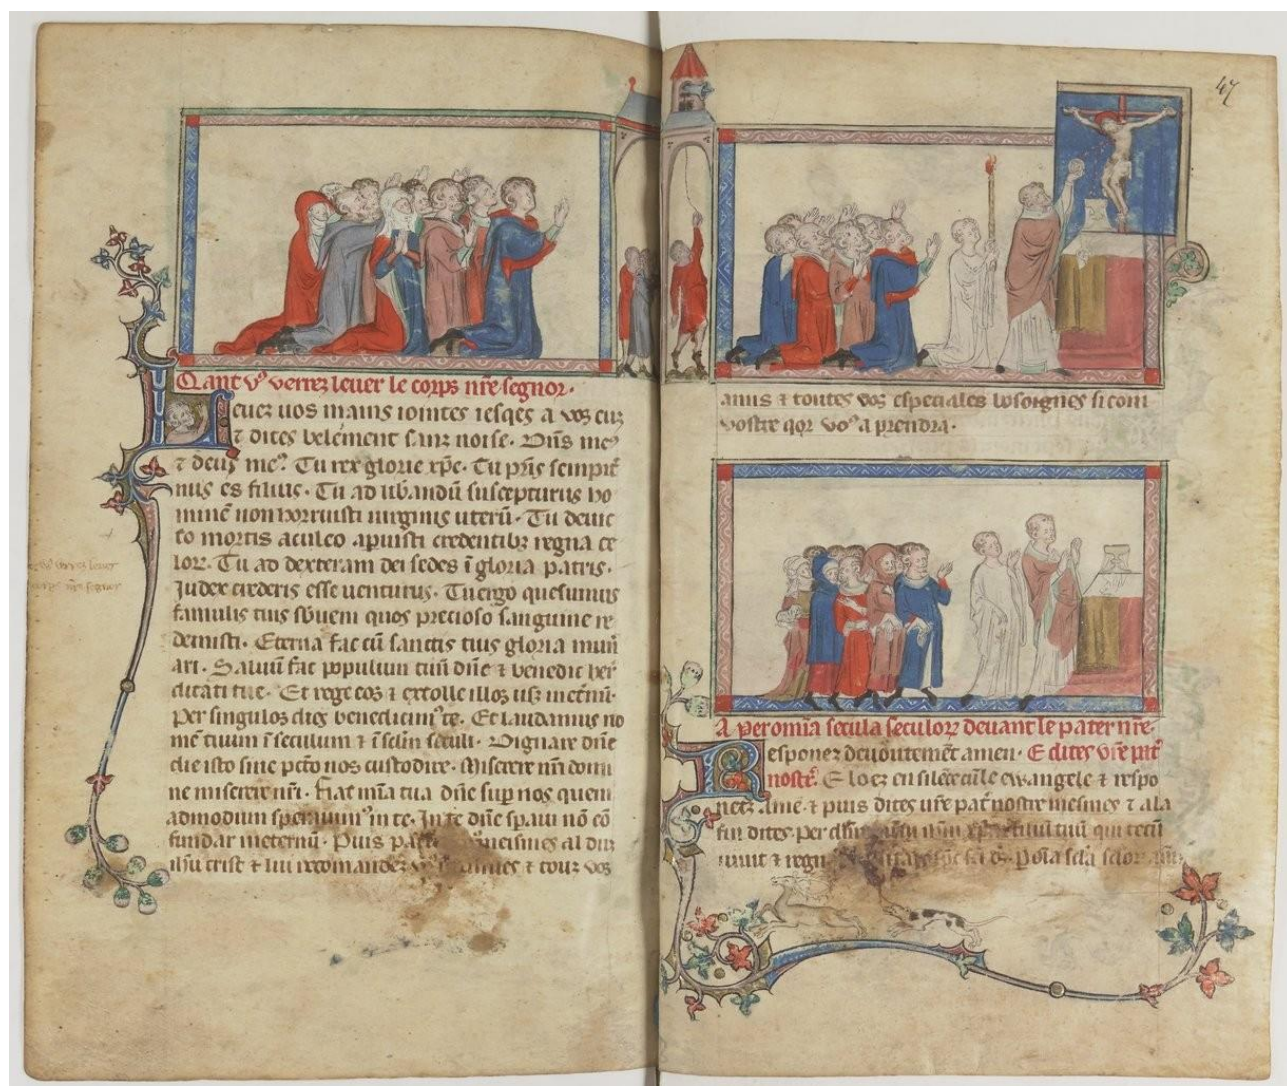 Qant vꝰ verrez leuer le corps nr̃e segnor·
Leuez uos mains iointes iesqes a vos euz
⁊ dites belemẽt sanz noise· Dñs meꝰ
⁊ deus meꝰ. Tu rex glorie xp̃e· Tu pr̃is sempit̃
nus es filius· Tu ad libandũ suscepturus ho
minẽ non horruisti uirginis uterũ· Tu deuic
to mortis aculeo apuisti credentibꝫ regna ce
loꝝ· Tu ad dexteram dei sedes ĩ gloria patris·
Judex crederis esse uenturus· Tu ergo quesumus
famulis tuis sb̃ueni quos precioso sanguine re
demisti· Eterna fac cũ sanctis tuis gloria mun
ari· Saluũ fac populum tuũ dñe ⁊ benedic her
ditati tue· Et rege eos ⁊ extolle illos usꝫ inet̃nũ·
Per singulos dies benedicimꝰ te· Et laudamus no
mẽ tuum ĩ seculum ⁊ ĩ sclm̃ seculi· Dignare dñe
die isto sine pct̃o nos custodire· Miserere nr̃i domi
ne miserere nr̃i· Fiat mĩa tua dñe sup nos quem
admodum sperauimꝰ in te· In te dñe sp̃aui nõ cõ
fundar inet̃nũ· Puis meismes al dur
ih̃u crist ⁊ lui recomandez ⁊ touz vos
47
amis ⁊ toutes voz especiales bosoignes si com
vostre qor voꝰ a prendra·
A per om̃ia secula seculoꝝ deuant le pater nr̃e·
Responez deuoutemẽt amen· E dites vr̃e pat̃
nostẽ. E loez en silẽce ewangele ⁊ respo
nez Amẽ· ⁊ puis dites vr̃e pat̃ nostre mesmes ⁊ a la
fin dites· Per filiũ tuũ qui tecũ
uiuit ⁊ regn